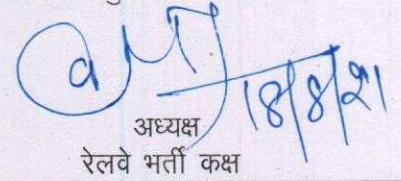 18/8/21
अध्यक्ष
रेलवे भर्ती कक्ष